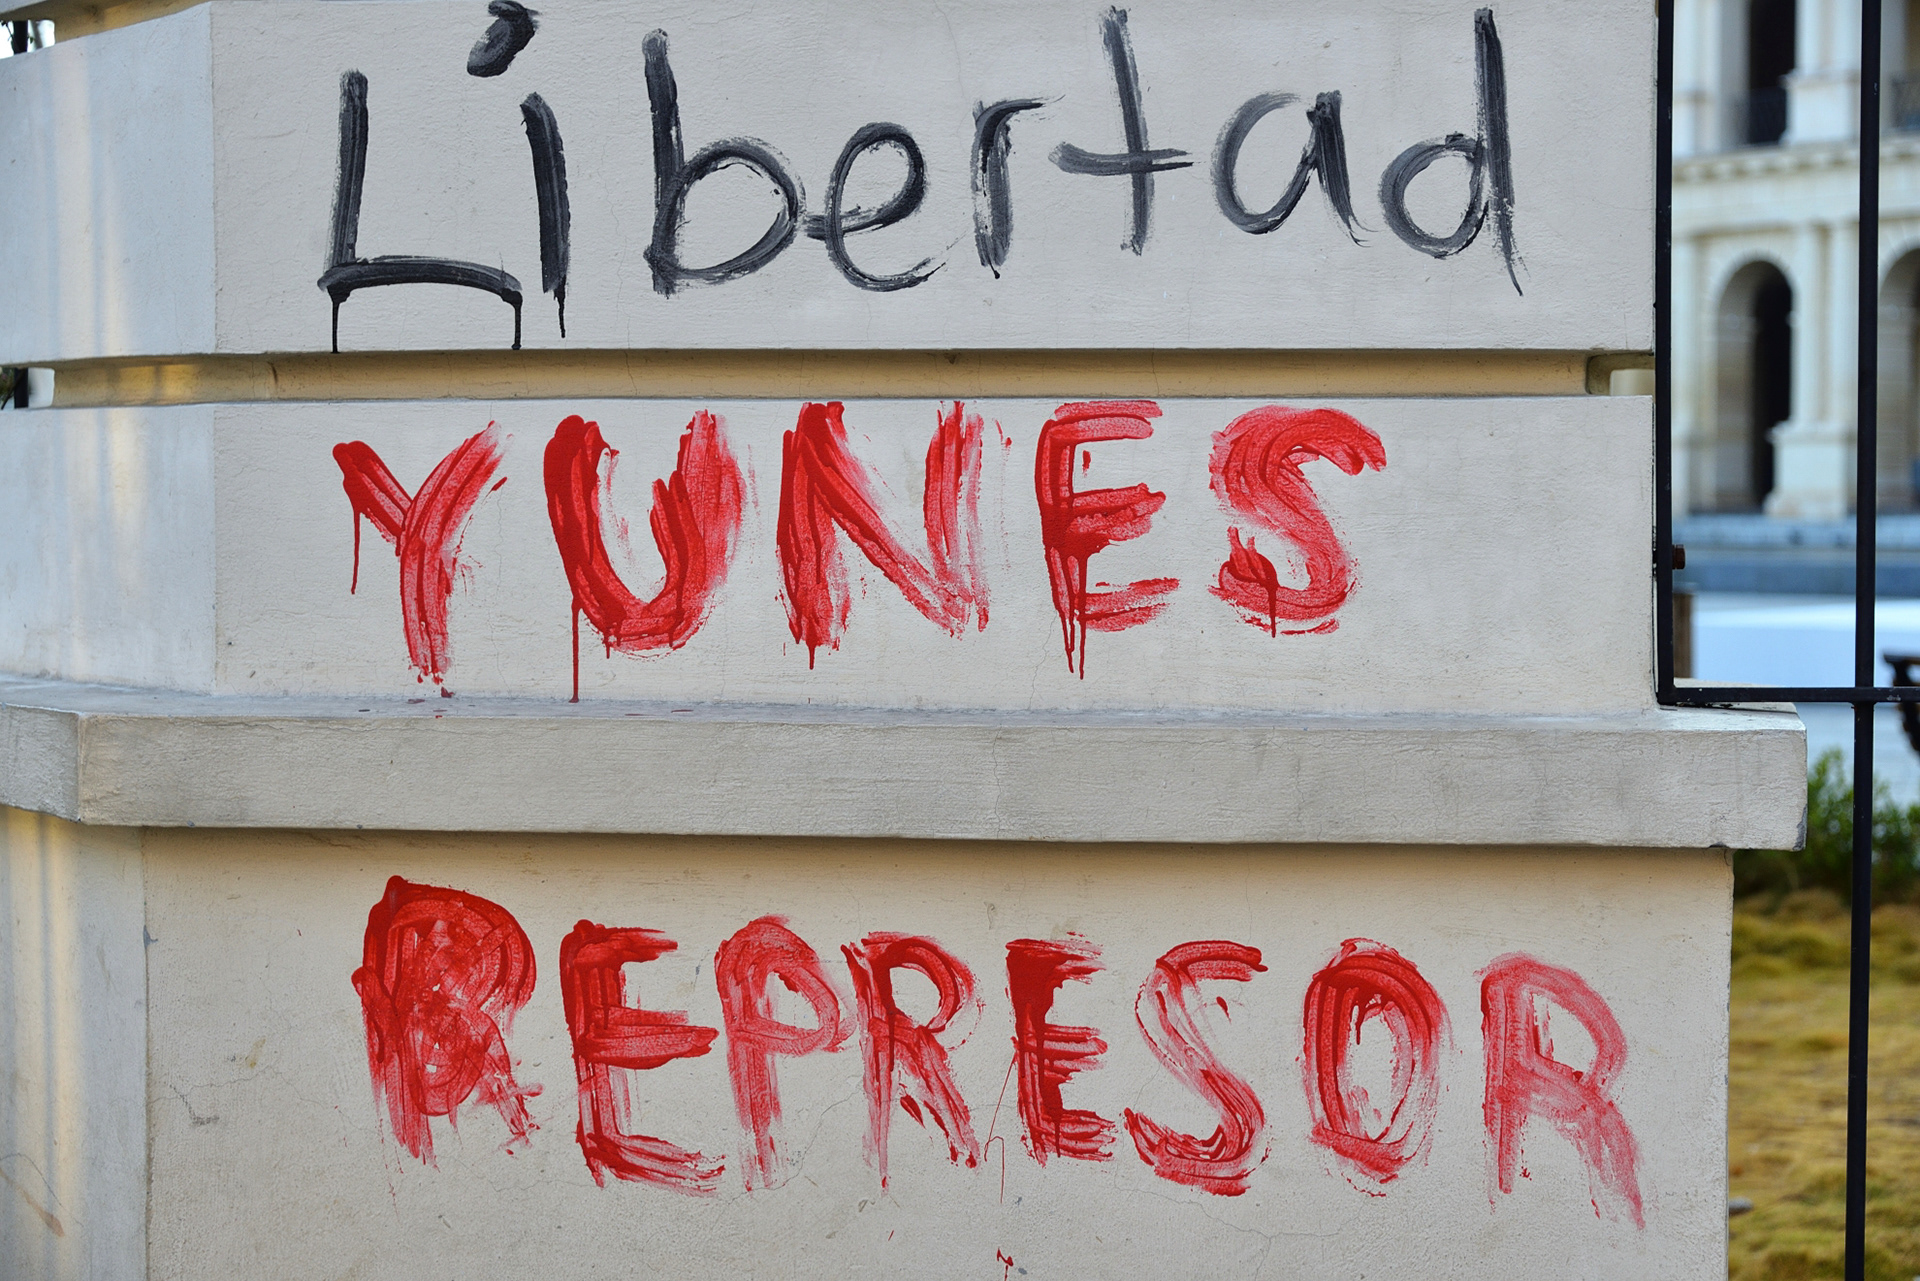 Libertad
YUNES
REPRESOR